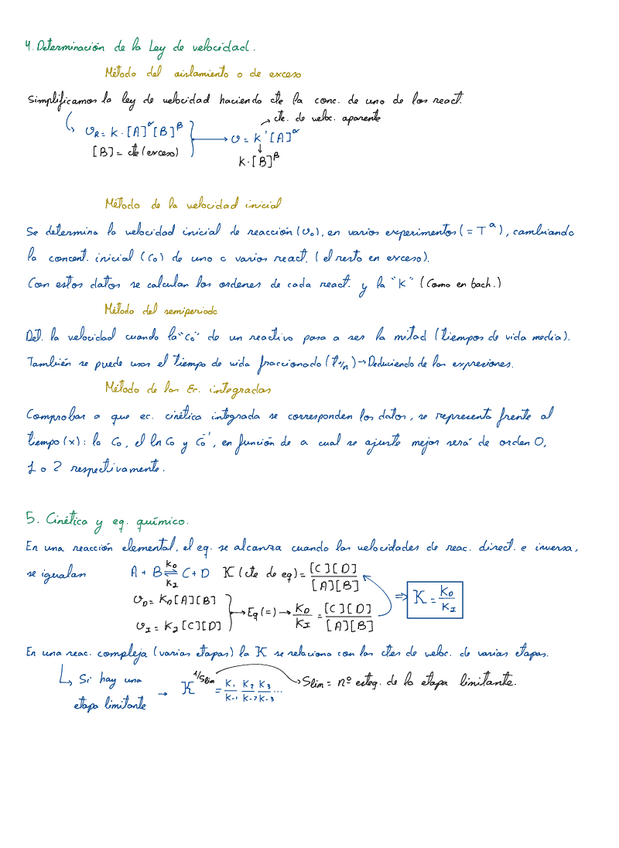 4. Determinación de la Ley de velocidad.
Método del aislamiento o de exceso
Simplificamos la ley de velocidad haciendo cte la conc. de uno de los react.
→ cte. de veloc. aparente
v_R = k · [A]^α [B]^β → v = k' [A]^α
[B] = cte (exceso) ↓
k · [B]^β
Método de la velocidad inicial
Se determina la velocidad inicial de reacción (v₀), en varios experimentos (= Tª), cambiando
la concent. inicial (c₀) de uno o varios react. (el resto en exceso).
Con estos datos se calculan los ordenes de cada react. y la "k" (Como en bach.)
Método del semiperiodo
Det. la velocidad cuando la "c₀" de un reactivo pasa a ser la mitad (tiempos de vida media).
También se puede usar el tiempo de vida fraccionado (t₁/n) → Deduciendo de las expresiones.
Método de las Ec. integradas
Comprobar a que ec. cinética integrada se corresponden los datos, se representa frente al
tiempo (x): la c₀, el ln c₀ y c₀⁻¹, en función de a cual se ajuste mejor será de orden 0,
1 o 2 respectivamente.
5. Cinética y eq. químico.
En una reacción elemental, el eq. se alcanza cuando las velocidades de reac. direct. e inversa,
se igualan A + B ⇌ C + D K (cte de eq) = [C][D] / [A][B]
k_D
k_I
v_D = k_D [A][B]
v_I = k_I [C][D] → Eq (=) → k_D / k_I = [C][D] / [A][B] ⇒ K = k_D / k_I
En una reac. compleja (varias etapas) la K se relaciona con las ctes de veloc. de varias etapas.
↳ Si hay una etapa limitante → K^(1/Slim) = k₁/k₋₁ k₂/k₋₂ k₃/k₋₃ ... → Slim = nº esteq. de la etapa limitante.